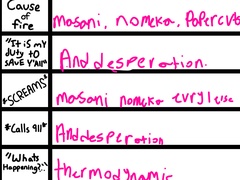 Cause of fire
masoni, nomeka, Papercuts
"It is my duty to SAVE Y'All"
And desperation.
*SCREAMS*
masoni nomeka evryl else
*Calls 911*
And desperation
"Whats Happening?"
thermodynamic